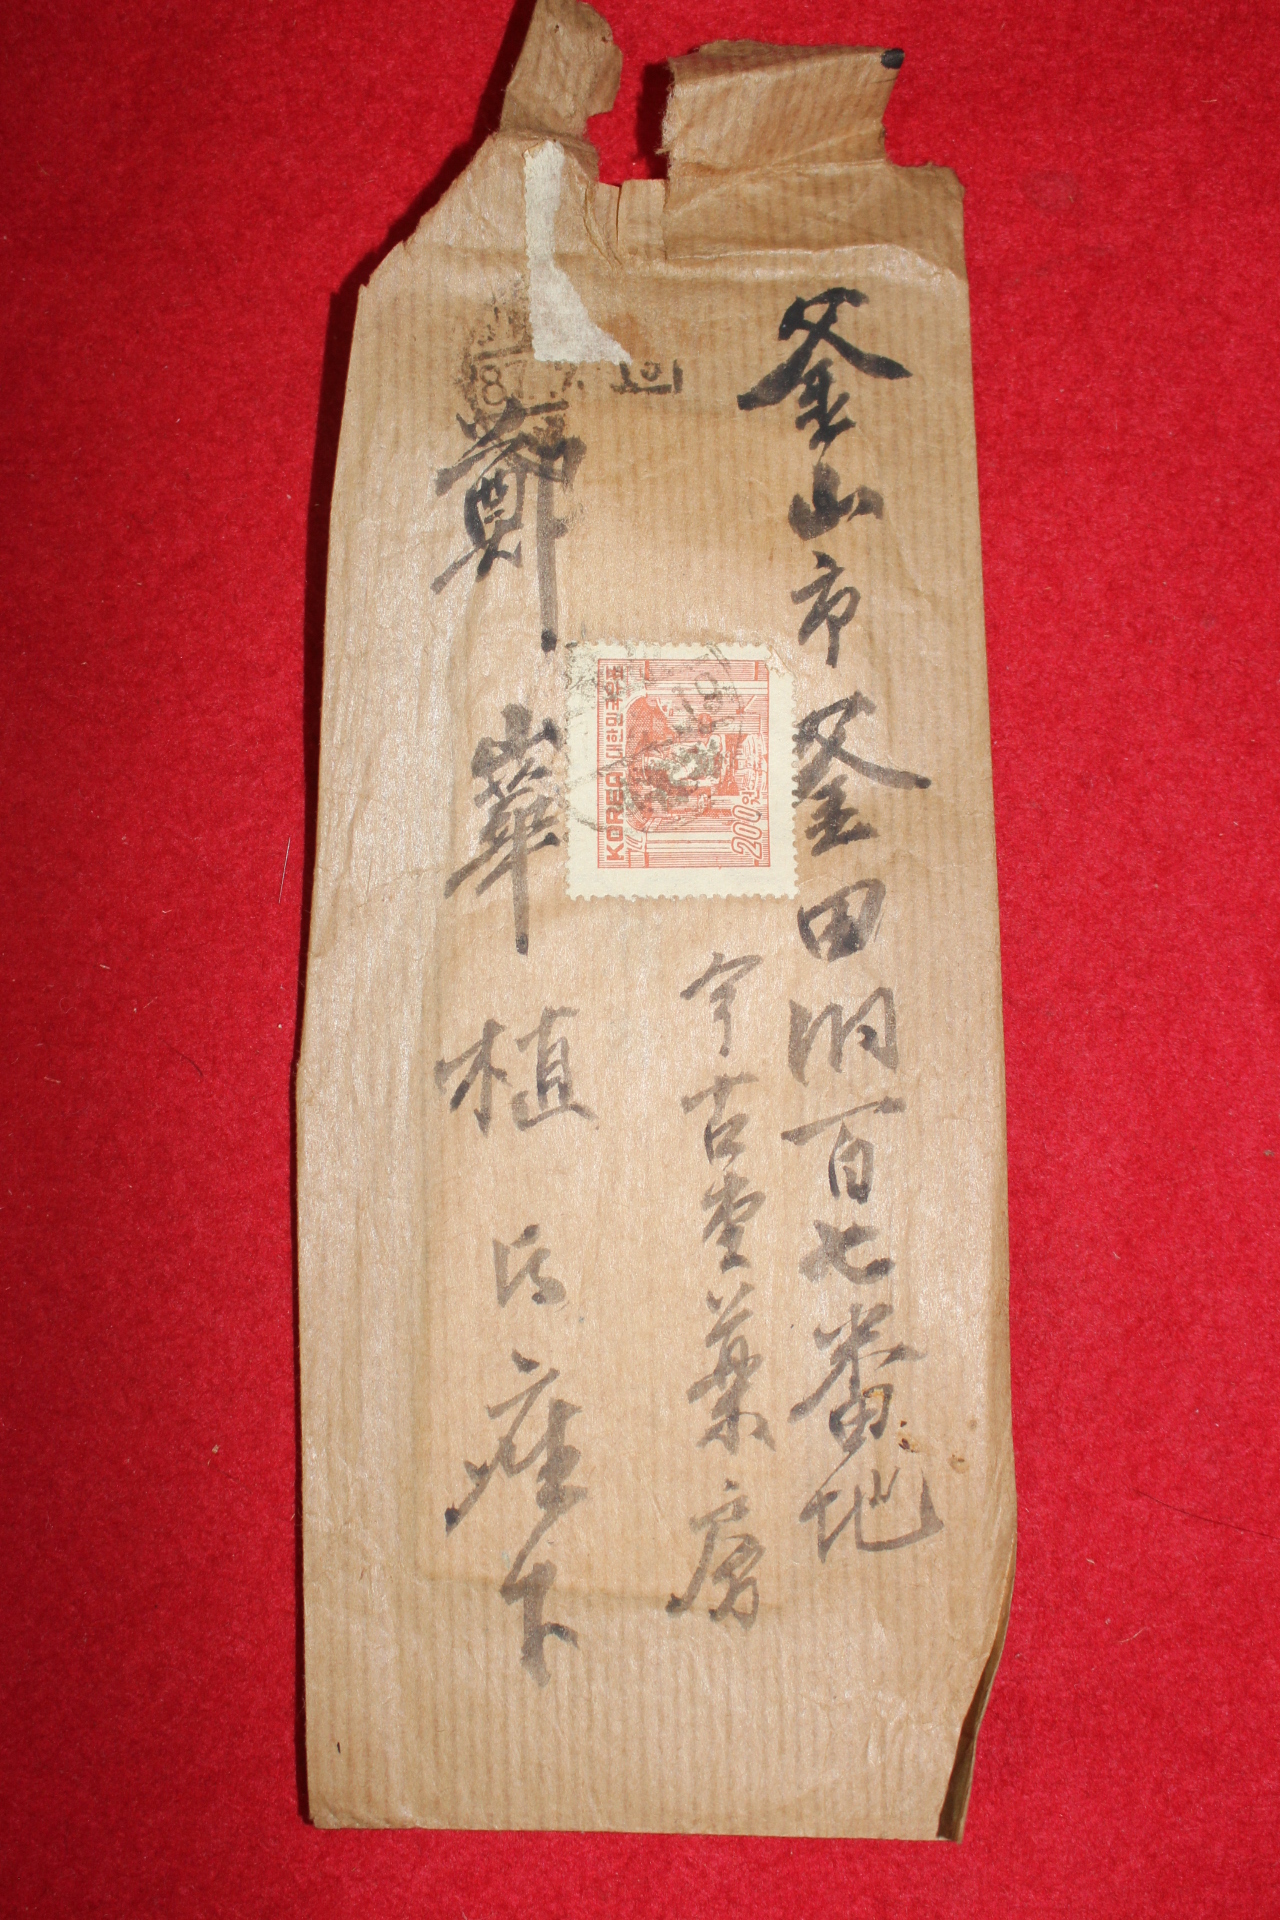 釜山市釜田洞百七番地
今古堂薬房
鄭華植氏座下
KOREA 대한민국우표
200원
87.7.